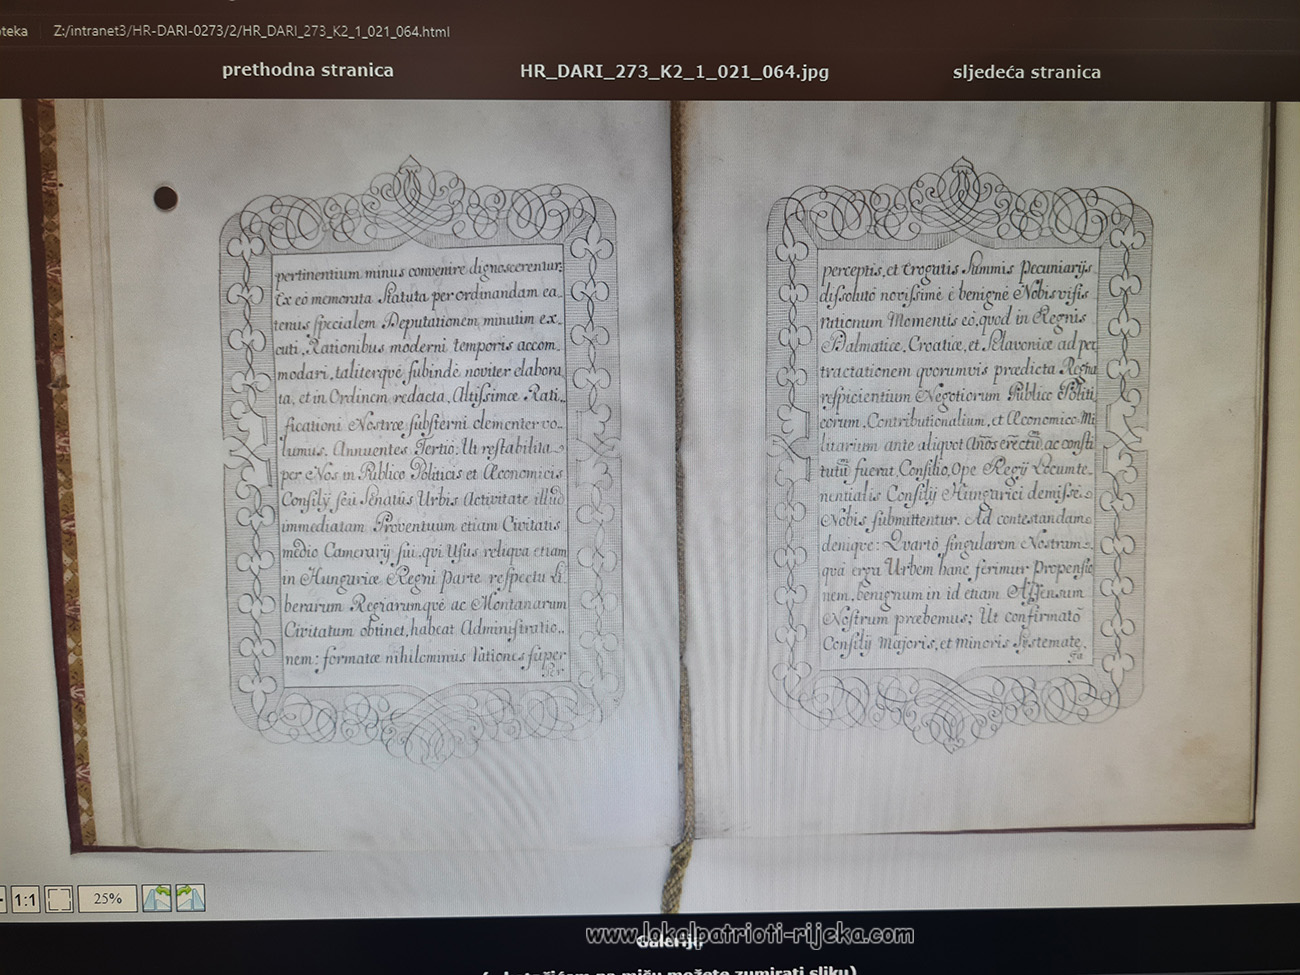 oteka
Z:/intranet3/HR-DARI-0273/2/HR_DARI_273_K2_1_021_064.html
prethodna stranica
HR_DARI_273_K2_1_021_064.jpg
sljedeća stranica
pertinentium minus convenire dignoscerentur:
Ex eó memorata Statuta per ordinandam ea-
tenus specialem Deputationem, minutim ex-
cuti, Rationibus moderni temporis accom-
modari, taliterqvè subindè noviter elabora
ta, et in Ordinem redacta, Altissimæ Rati-
ficationi Nostræ substerni clementer vo-
lumus. Annuentes Tertiò: Ut restabilita
per Nos in Publico Politicis et Œconomicis
Consilÿ seü Senatûs Urbis Activitate illud
immediatam Proventuum etiam Civitatis
medio Camerarÿ sui, qvi Usus reliqva etiam
in Hungariæ Regni Parte respectu Li
berarum Regiarumqvè ac Montanarum
Civitatum obtinet, habeat Administratio-
nem: formatæ nihilominus Rationes super
Per
perceptis, et Erogatis Summis Pecuniarÿs
dissolutò novissimè è benignè Nobis visis
rationum Momentis eò, qvod in Regnis
Dalmatiæ, Croatiæ, et Sclavoniæ ad per
tractationem qvorumvis prædicta Regna
respicientium Negotiorum Publico Politi
corum, Contributionalium, et Œconomico Mi
litarium ante aliqvot Años erectum ac consti
tutum fuerat Consilio, Ope Regÿ Locumte-
nentialis Consilÿ Hungarici demissè
Nobis submittentur. Ad contestandam
deniqve: Qvartò singularem Nostram
qvâ erga Urbem hanc ferimur Propensio
nem, benignum in id etiam Assensum
Nostrum præbemus; Ut confirmatò
Consilÿ Majoris, et minoris Systemate,
1:1
25%
www.lokalpatrioti-rijeka.com
Galerija
možete zumirati sliku)